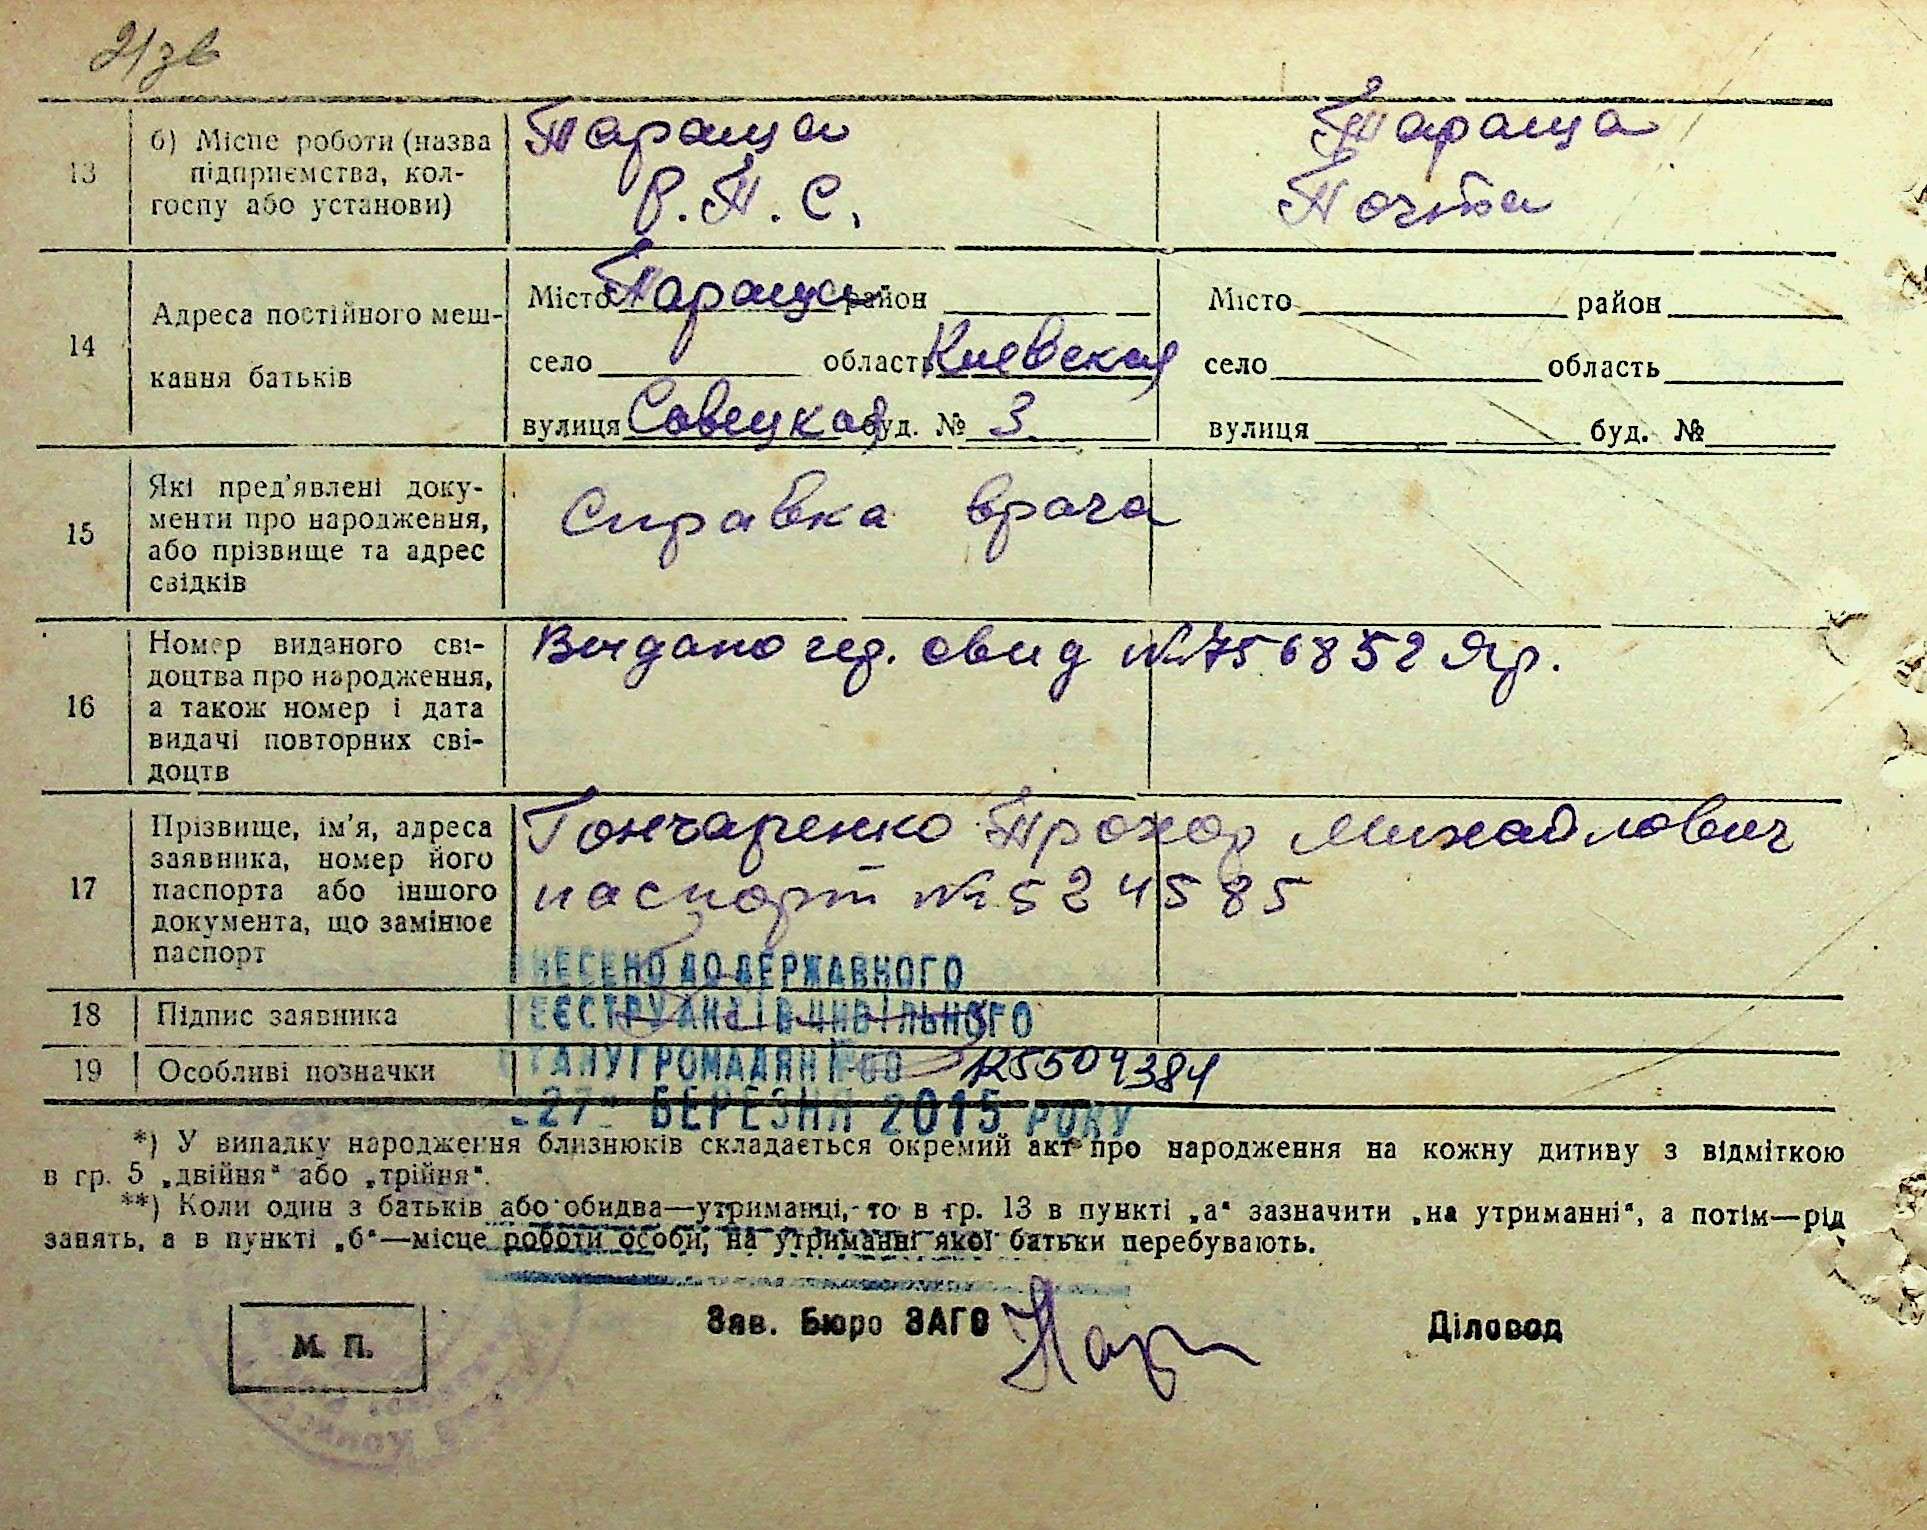 21зв
13
б) Місце роботи (назва підприємства, колгоспу або установи)
Тараща
Р.П.С.
Тараща
Почта
14
Адреса постійного мешкання батьків
Місто Тараща район
село область Киевская
вулиця Совецкая буд. № 3
Місто район
село область
вулиця буд. №
15
Які пред'явлені документи про народження, або прізвище та адрес свідків
Справка врача
16
Номер виданого свідоцтва про народження, а також номер і дата видачі повторних свідоцтв
Выдано свид № 756852 Яр.
17
Прізвище, ім'я, адреса заявника, номер його паспорта або іншого документа, що замінює паспорт
Гончаренко Прохор Михайлович
паспорт № 524585
ВНЕСЕНО ДО ДЕРЖАВНОГО
РЕЄСТРУ АКТІВ ЦИВІЛЬНОГО
СТАНУ ГРОМАДЯН № 00 125504384
27 БЕРЕЗНЯ 2015 РОКУ
18
Підпис заявника
19
Особливі позначки
*) У випадку народження близнюків складається окремий акт про народження на кожну дитину з відміткою
в гр. 5 „двійня" або „трійня".
**) Коли один з батьків або обидва—утриманці, то в гр. 13 в пункті „а" зазначити „на утриманні", а потім—рід
занять, а в пункті „б"—місце роботи особи, на утриманні якої батьки перебувають.
М. П.
Зав. Бюро ЗАГС
Діловод